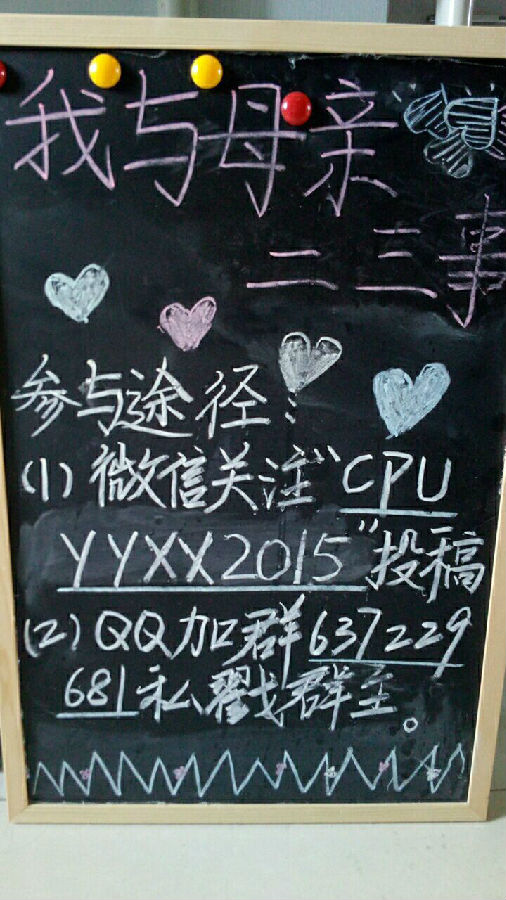 我与母亲
二三事
参与途径：
(1) 微信关注“CPU
YYXX2015”投稿
(2) QQ加群637229
681私戳群主。